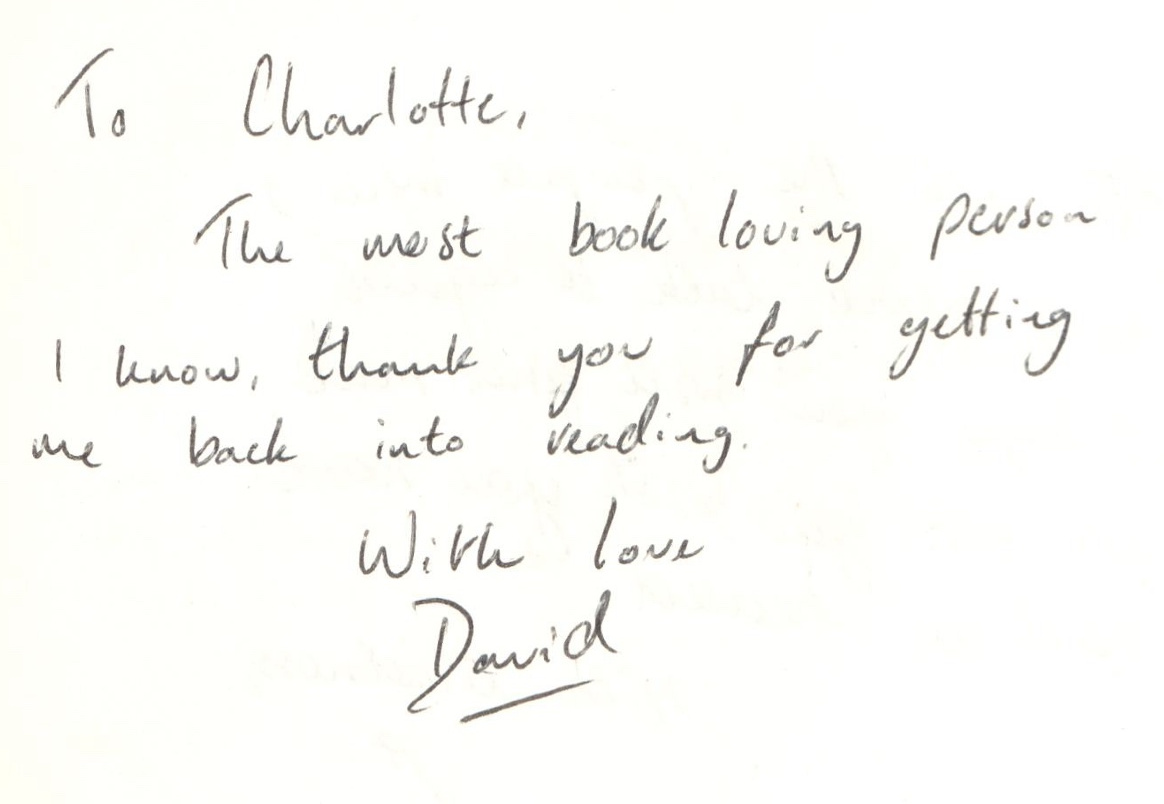 To Charlotte,
The most book loving person
I know, thank you for getting
me back into reading.
With love
David